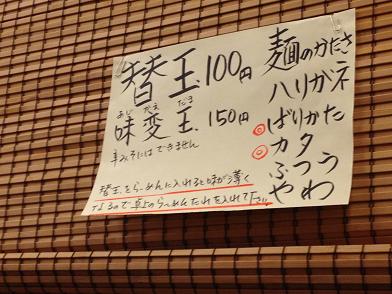 替玉100円
味変玉150円
辛みそにはできません
替玉をらーめんに入れると味が薄く
なるので卓上のらーめんたれを入れて下さい
麺のかたさ
ハリガネ
◎ばりかた
◎カタ
ふつう
やわ